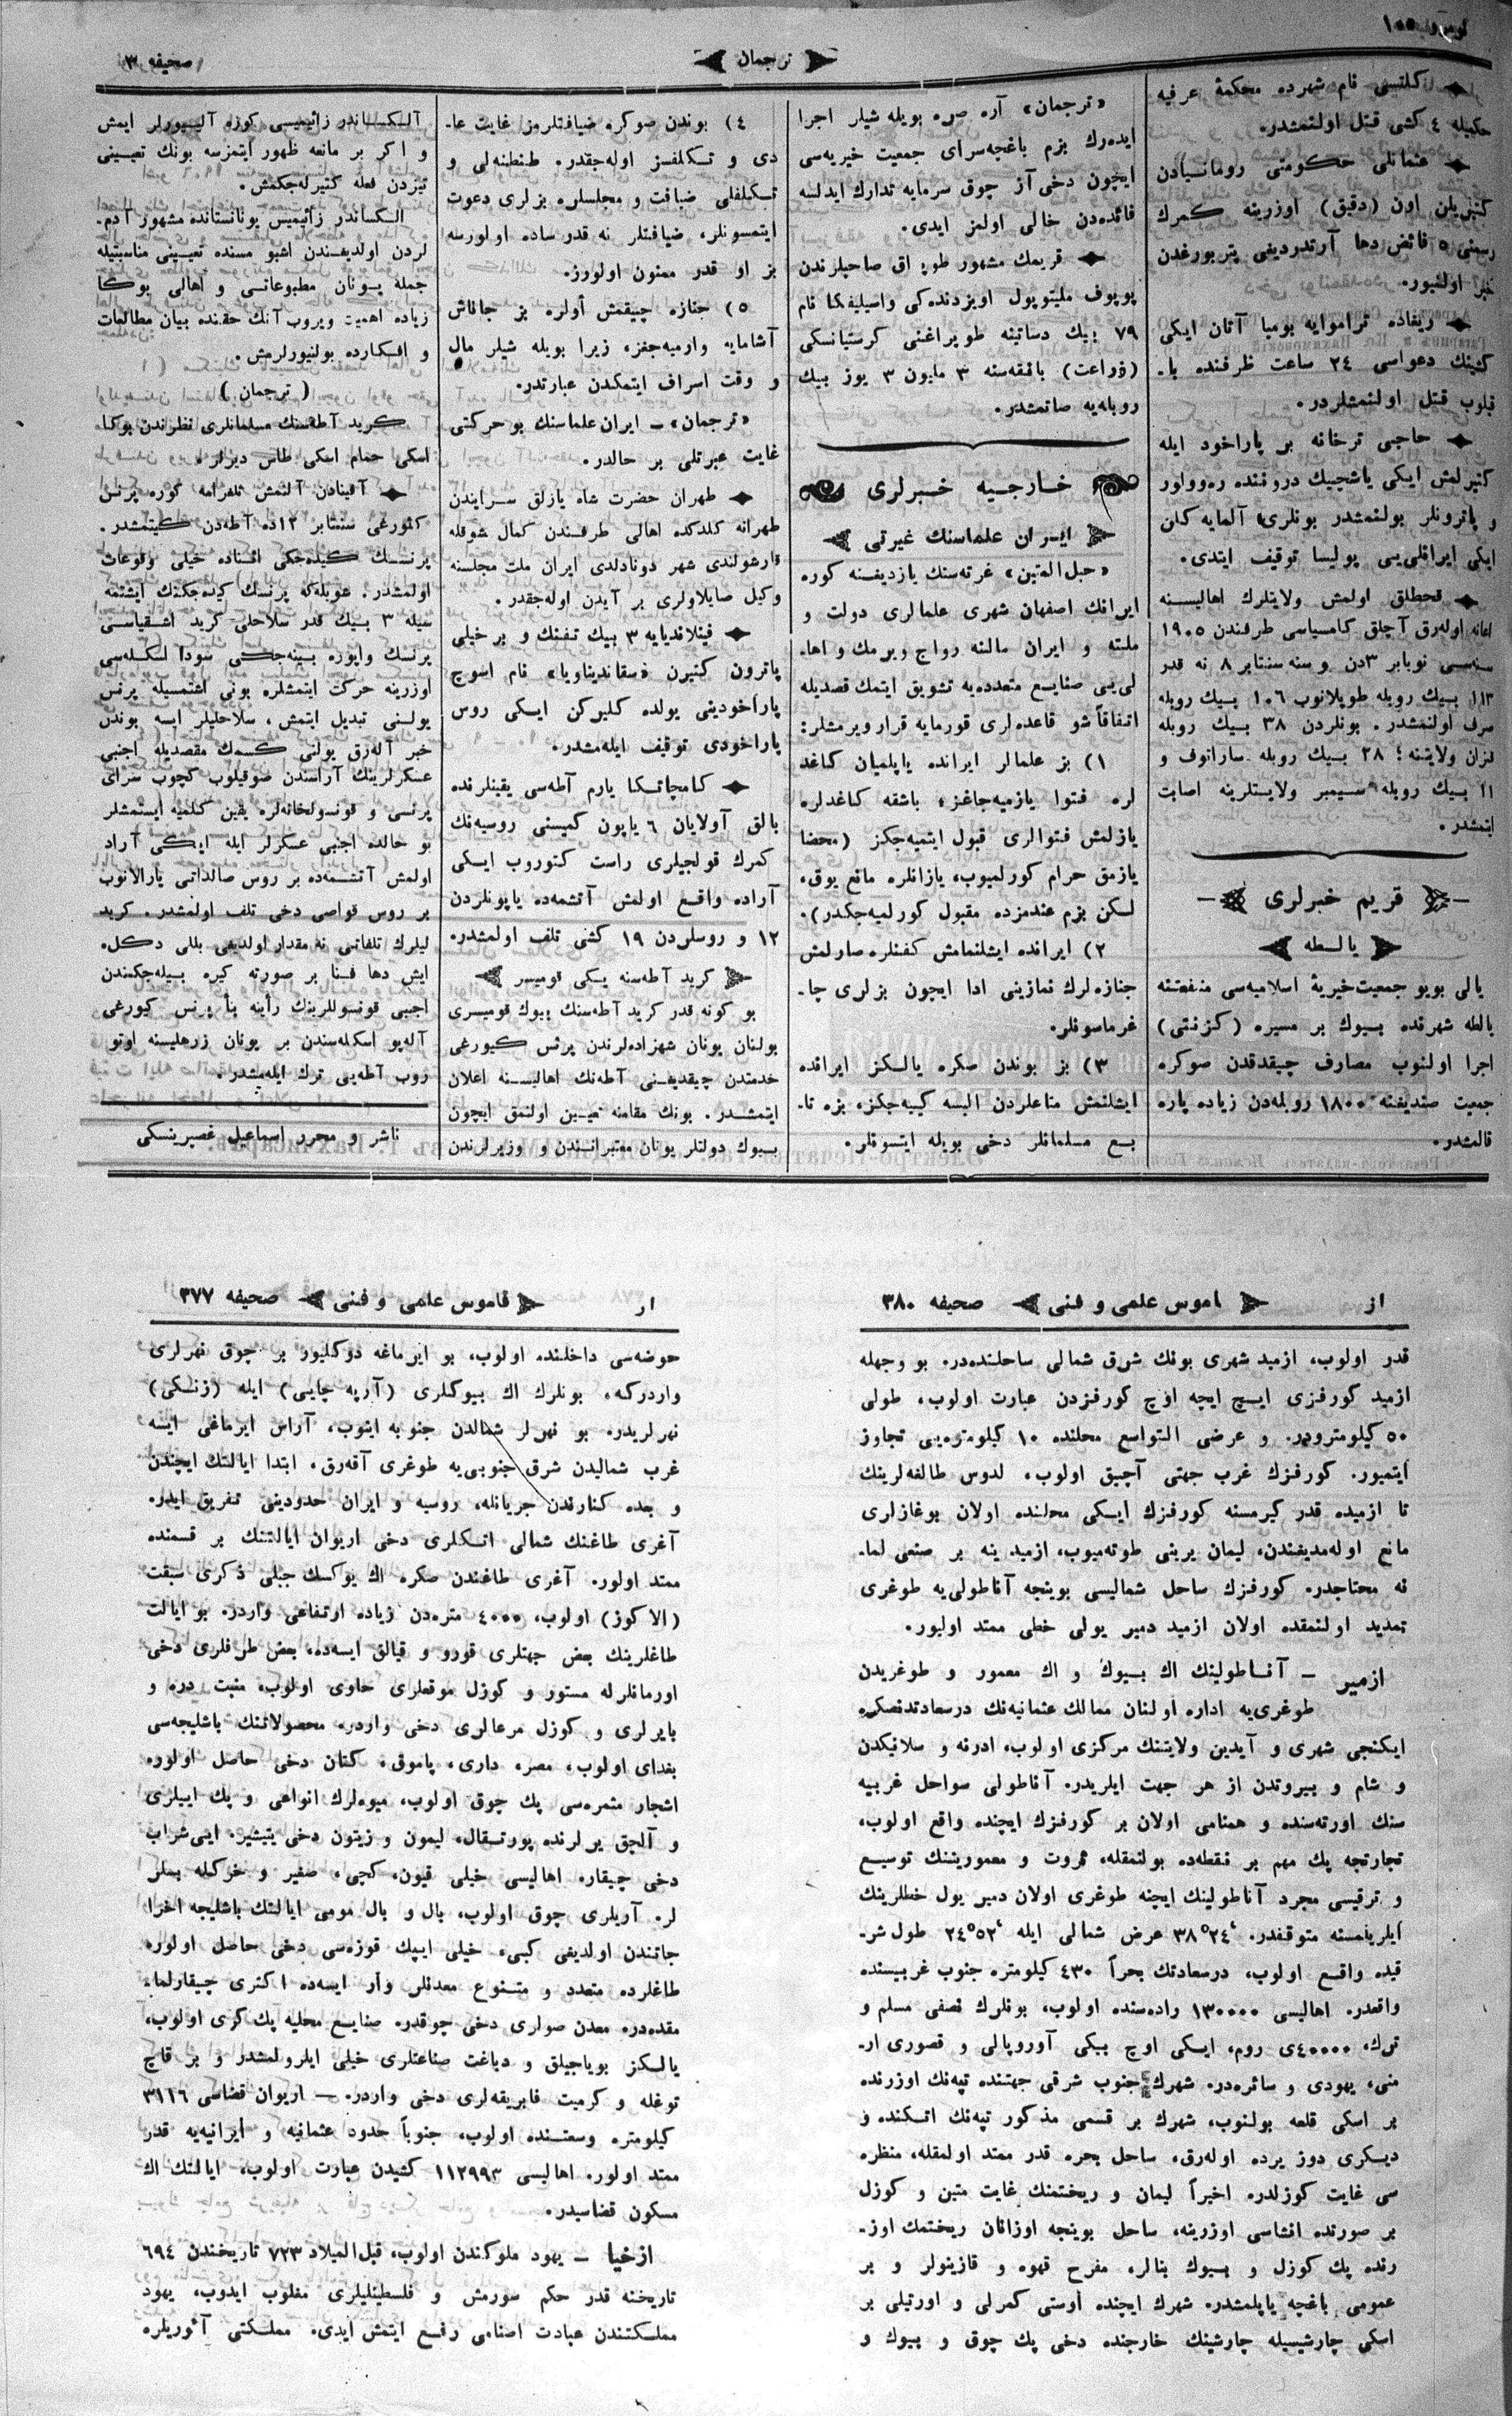 نومرو ١٠٥
ترجمان
صحيفه ٣
كلتسى نام شهرده محكمۀ عرفيه
حكميله ٤ كشى قتل اولنمشدر.
عثمانلى حكومتى رومانيادن
كتيريلن اون (دقيق) اوزرينه كمرك
رسمنى ٥ فائض دها آرتدرديغى پتربورغدن
خبر اولنيور.
ريغاده تراموايه بومبا آتان ايكى
كشينك دعواسى ٢٤ ساعت ظرفنده با-
قيلوب قتل اولنمشلردر.
حاجى ترخانه بر پاراخود ايله
كتيرلمش ايكى ياشچيك دروننده ره‌وواور
و پاترونلر بولنمشدر بونلرى آلمايه كلن
ايكى ايرانلى‌يى پوليسا توقيف ايتدى.
قحطلق اولمش ولايتلرك اهاليسنه
اعانه اوله‌رق آچلق كاميسياسى طرفندن ١٩٠٥
سنه‌سى نويابر ٣دن و سنه سنتابر ٨ نه قدر
١١٣ بيك روبله طوپلانوب ١٠٦ بيك روبله
صرف اولنمشدر. بونلردن ٣٨ بيك روبله
قزان ولايتنه؛ ٢٨ بيك روبله ساراتوف و
١١ بيك روبله سيمبر ولايتلرينه اصابت
ايتمشدر.
قريم خبرلرى
يالطه
يالى بويو جمعيت خيريۀ اسلاميه‌سى منفعتنه
يالطه شهرنده بيوك بر مسيره (كزنتى)
اجرا اولنوب مصارف چيقدقدن صوكره
جمعيت صنديغنه ١٨٠٠ روبله‌دن زياده پاره
قالمشدر.
«ترجمان» آره صره بويله شيلر اجرا
ايده‌رك بزم باغچه‌سراى جمعيت خيريه‌سى
ايچون دخى آز چوق سرمايه تدارك ايدلسه
فائده‌دن خالى اولمز ايدى.
قريمك مشهور طوپراق صاحبلرندن
پوپوف مليتوپول اويزدنده‌كى واسيليفكا نام
٧٩ بيك دساتينه طوپراغنى كرستيانسكى
(زراعت) بانقه‌سنه ٣ مليون ٣ يوز بيك
روبله‌يه صاتمشدر.
خارجيه خبرلرى
ايران علماسنك غيرتى
«حبل المتين» غزته‌سنك يازديغنه كوره
ايرانك اصفهان شهرى علمالرى دولت و
ملته و ايران مالنه رواج ويرمك و اها-
لى‌يى صنايع متعدده‌يه تشويق ايتمك قصديله
اتفاقاً شو قاعده‌لرى قورمايه قرار ويرمشلر:
١) بز علمالر ايرانده ياپلميان كاغد
لره فتوا يازميه‌جاغز؛ باشقه كاغدلره
يازلمش فتوالرى قبول ايتميه‌جكز (محضا
يازمق حرام كورلميوب، يازانلره مانع يوق،
لكن بزم عندمزده مقبول كورلميه‌جكدر).
٢) ايرانده ايشلنمامش كفنلره صارلمش
جنازه‌لرك نمازينى ادا ايچون بزلرى چا-
غرماسونلر.
٣) بز بوندن صكره يالكز ايرانده
ايشلنمش متاعلردن البسه كييه‌جكز، بزه تا-
بع مسلمانلر دخى بويله ايتسونلر.
٤) بوندن صوكره ضيافتلرمز غايت عا-
دى و تكلفسز اوله‌جقدر. طنطنه‌لى و
تكلفلى ضيافت و مجلسلره بزلرى دعوت
ايتمسونلر، ضيافتلر نه قدر ساده اولورسه
بز او قدر ممنون اولورز.
٥) جنازه چيقمش أولره بز جاناش
آشامايه وارميه‌جغز، زيرا بويله شيلر مال
و وقت اسراف ايتمكدن عبارتدر.
«ترجمان» – ايران علماسنك بو حركتى
غايت عبرتلى بر حالدر.
طهران حضرت شاه يازلق سرايندن
طهرانه كلدكده اهالى طرفندن كمال شوقله
قارشولندى شهر دوناندى ايران ملت مجلسنه
وكيل صايلاولرى بر آيدن اوله‌جقدر.
فينلانديايه ٣ بيك تفنك و بر خيلى
پاترون كتيرن «سقانديناويا» نام اسوچ
پاراخودينى يولده كليركن ايكى روس
پاراخودى توقيف ايله‌مشدر.
كامچاتكا يارم آطه‌سى يقينلرنده
بالق آولايان ٦ ياپون كميسنى روسيه‌نك
كمرك قولجيلرى راست كتوروب ايكى
آراده واقع اولمش آتشمه‌ده ياپونلردن
١٢ و روسلردن ١٩ كشى تلف اولمشدر.
كريد آطه‌سنه يكى قوميسر
بو كونه قدر كريد آطه‌سنك بيوك قوميسرى
بولنان يونان شهزاده‌لرندن پرنس كيورغى
خدمتدن چيقديغنى آطه‌نك اهاليسنه اعلان
ايتمشدر. بونك مقامنه تعيين اولنمق ايچون
بيوك دولتلر يونان معتبرانندن و وزيرلرندن
آلكساندر زائيميسى كوزه آليورلر ايمش
و اكر بر مانعه ظهور ايتمزسه بونك تعيينى
تيزدن فعله كتيرله‌جكمش.
الكساندر زائيميس يونانستانده مشهور آدم-
لردن اولديغندن اشبو مسنده تعيينى مناسبتيله
جمله يونان مطبوعاتى و اهالى بوكا
زياده اهميت ويروب آنك حقنده بيان مطالعات
و افكارده بولنيورلرمش.
(ترجمان)
كريد آطه‌سنك مسلمانلرى نظرندن بوكا
اسكى حمام اسكى طاس ديرلر.
آفينادن آلنمش تلغرامه كوره پرنس
كئورغى سنتابر ١٢ده آطه‌دن كيتمشدر.
پرنسك كيده‌جكى اثناده خيلى وقوعات
اولمشدر. شويله‌كه پرنسك كيده‌جكنك ايشتمه
سيله ٣ بيك قدر سلاحلى كريد اشقياسى
پرنسك واپوره بينه‌جكى سودا اسكله‌سى
اوزرينه حركت ايتمشلره بونى اشتمسيله پرنس
يولنى تبديل ايتمش، سلاحليلر ايسه بوندن
خبر آله‌رق يولنى كسمك مقصديله اجنبى
عسكرلرينك آراسندن صوقيلوب كچوب سراى
پرنسى و قونسولخانه‌لره يقين كلميه ايستمشلر
بو حالده اجنبى عسكرلر ايله ايكى آراد
اولمش آتشمه‌ده بر روس صالداتى يارالانوب
بر روس قواصى دخى تلف اولمشدر. كريد
ليلرك تلفاتى نه مقدار اولديغى بللى دكل.
ايش دها فنا بر صورته كيره بيله‌جكندن
اجنبى قونسوللرينك رأينه بنأ پرنس كيورغى
آله‌يو اسكله‌سندن بر يونان زرهليسنه اوتو
روب آطه‌يى ترك ايله‌مشدر.
ناشر و محرر اسماعيل غصپرينسكى
از
قاموس علمى و فنى
صحيفه ٣٨٠
قدر اولوب، ازميد شهرى بونك شرق شمالى ساحلنده‌در. بو وجهله
ازميد كورفزى ايچ ايچه اوچ كورفزدن عبارت اولوب، طولى
٥٠ كيلومترودر. و عرضى التواسع محلنده ١٠ كيلومتره‌يى تجاوز
ايتميور. كورفزك غرب جهتى آچيق اولوب، لدوس طالغه‌لرينك
تا ازميده قدر كيرمسنه كورفزك ايكى محلنده اولان بوغازلرى
مانع اوله‌مديغندن، ليمان يرينى طوته‌ميوب، ازميد ينه بر صنعى لما-
نه محتاجدر. كورفزك ساحل شماليسى بوينجه آناطولى‌يه طوغرى
تمديد اولنمقده اولان ازميد دمير يولى خطى ممتد اوليور.
ازمير – آناطولينك اك بيوك و اك معمور و طوغريدن
طوغرى‌يه اداره اولنان ممالك عثمانيه‌نك درسعادتدنصكره
ايكنجى شهرى و آيدين ولايتنك مركزى اولوب، ادرنه و سلانيكدن
و شام و بيروتدن از هر جهت ايلريدر. آناطولى سواحل غربيه
سنك اورته‌سنده و همنامى اولان بر كورفزك ايچنده واقع اولوب،
تجارتجه پك مهم بر نقطه‌ده بولنمقله، ثروت و معموريتنك توسيع
و ترقيسى مجرد آناطولينك ايچنه طوغرى اولان دمير يول خطلرينك
ايلريلمسنه متوقفدر. ٢٤ْ ٣٨ عرض شمالى ايله ٥٢ْ ٢٤ طول شر-
قيده واقع اولوب، درسعادتك بحراً ٤٣٠ كيلومتره جنوب غربيسنده
واقعدر. اهاليسى ١٣٠٠٠٠ راده‌سنده اولوب، بونلرك نصفى مسلم و
ترك، ٤٠٠٠٠ى روم، ايكى اوچ بيكى آوروپالى و قصورى ار-
منى، يهودى و سائره‌در. شهرك جنوب شرقى جهتنده تپه‌نك اوزرنده
بر اسكى قلعه بولنوب، شهرك بر قسمى مذكور تپه‌نك اتكنده و
ديكرى دوز يرده اوله‌رق، ساحل بحره قدر ممتد اولمقله، منظره
سى غايت كوزلدر. اخيراً ليمان و ريختمنك غايت متين و كوزل
بر صورتده انشاسى اوزرينه، ساحل بوينجه اوزانان ريختمك اوز-
رنده پك كوزل و بيوك بنالر، مفرح قهوه و قازينولر و بر
عمومى باغچه ياپلمشدر. شهرك ايچنده اوستى كمرلى و اورتيلى بر
اسكى چارشيسيله چارشينك خارجنده دخى پك چوق و بيوك و
ار
قاموس علمى و فنى
صحيفه ٣٧٧
حوضه‌سى داخلنده اولوب، بو ايرماغه دوكليور بر چوق نهرلرى
واردركه، بونلرك اك بيوكلرى (آرپه چايى) ايله (زنكى)
نهرلريدر. بو نهرلر شمالدن جنوبه اينوب، آراس ايرماغى ايسه
غرب شماليدن شرق جنوبى‌يه طوغرى آقه‌رق، ابتدا ايالتك ايچندن
و بعده كنارندن جريانله، روسيه و ايران حدودينى تفريق ايدر.
آغرى طاغنك شمالى اتكلرى دخى اريوان ايالتنك بر قسمنده
ممتد اولور. آغرى طاغندن صكره اك يوكسك جبلى ذكرى سبقت
(الاكوز) اولوب، ٤٠٠٠ متره‌دن زياده ارتفاعى واردر. بو ايالت
طاغلرينك بعض جهتلرى قورو و قيالق ايسه‌ده، بعض طرفلرى دخى
اورمانلرله مستور و كوزل موقعلرى حاوى اولوب، منبت دره و
بايرلرى و كوزل مرعالرى دخى واردر. محصولاتنك باشليجه‌سى
بغداى اولوب، مصر، دارى، پاموق، كتان دخى حاصل اولور.
اشجار مثمره‌سى پك چوق اولوب، ميوه‌لرك انواعى و پك اييلرى
و آلچق يرلرنده پورتقال، ليمون و زيتون دخى يتيشير. ايى شراب
دخى چيقار. اهاليسى خيلى قيون، كچى، صغير و خركله بسلر
لر. آريلرى چوق اولوب، بال و بال مومى ايالتك باشليجه اخرا
جاتندن اولديغى كبى، خيلى ايپك قوزه‌سى دخى حاصل اولور.
طاغلرده متعدد و متنوع معدنلر وار ايسه‌ده اكثرى چيقارلما-
مقده‌در. معدن صولرى دخى چوقدر. صنايع محليه پك كرى اولوب،
يالكز بوياجيلق و دباغت صناعتلرى خيلى ايلرولمشدر و بر قاچ
توغله و كرميت فابريقه‌لرى دخى واردر. – اريوان قضاسى ٣١١٦
كيلومتره وسعتنده اولوب، جنوباً حدود عثمانيه و ايرانيه‌يه قدر
ممتد اولور. اهاليسى ١١٢٩٩٣ كشيدن عبارت اولوب، ايالتك اك
مسكون قضاسيدر.
ازخيا – يهود ملوكندن اولوب، قبل الميلاد ٧٢٣ تاريخندن ٦٩٤
تاريخنه قدر حكم سورمش و فلسطينليلرى مغلوب ايدوب، يهود
مملكتندن عبادت اصنامى رفع ايتمش ايدى. مملكتى آثوريلره